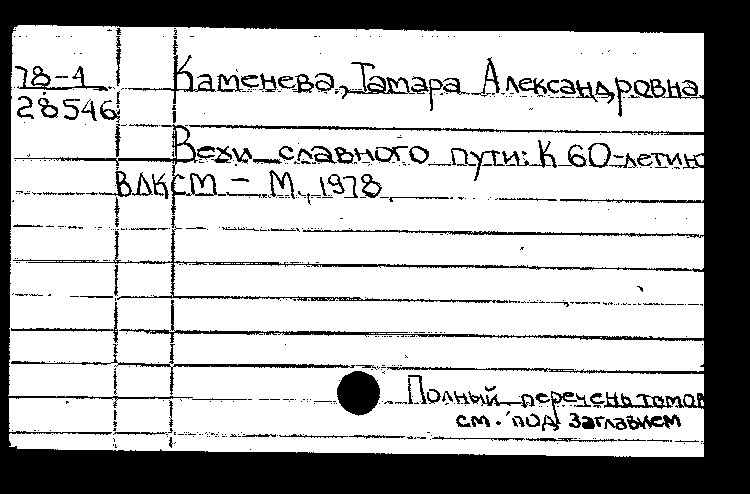 78-4
28546
Каменева, Тамара Александровна
Вехи славного пути: К 60-летию
ВЛКСМ – М., 1978
Полный перечень томов
см. под заглавием